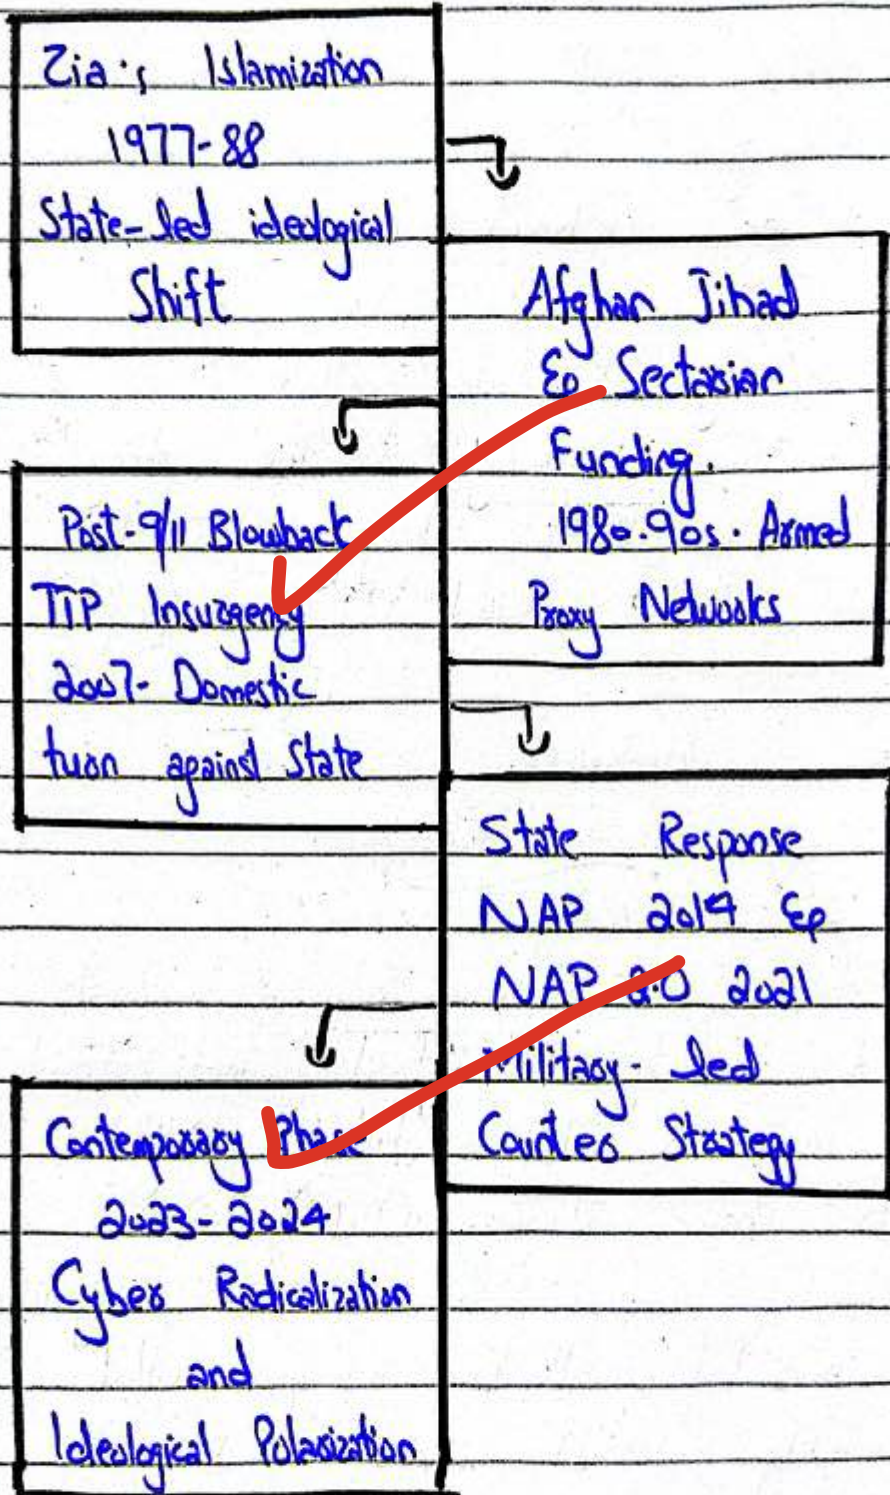 Zia's Islamization
1977-88
State-led ideological
Shift
Afghan Jihad
& Sectarian
Funding.
1980-90s. Armed
Proxy Networks
Post-9/11 Blowback
TTP Insurgency
2007- Domestic
turn against State
State Response
NAP 2014 &
NAP 2.0 2021
Military-led
Counter Strategy
Contemporary Phase
2023-2024
Cyber Radicalization
and
Ideological Polarization